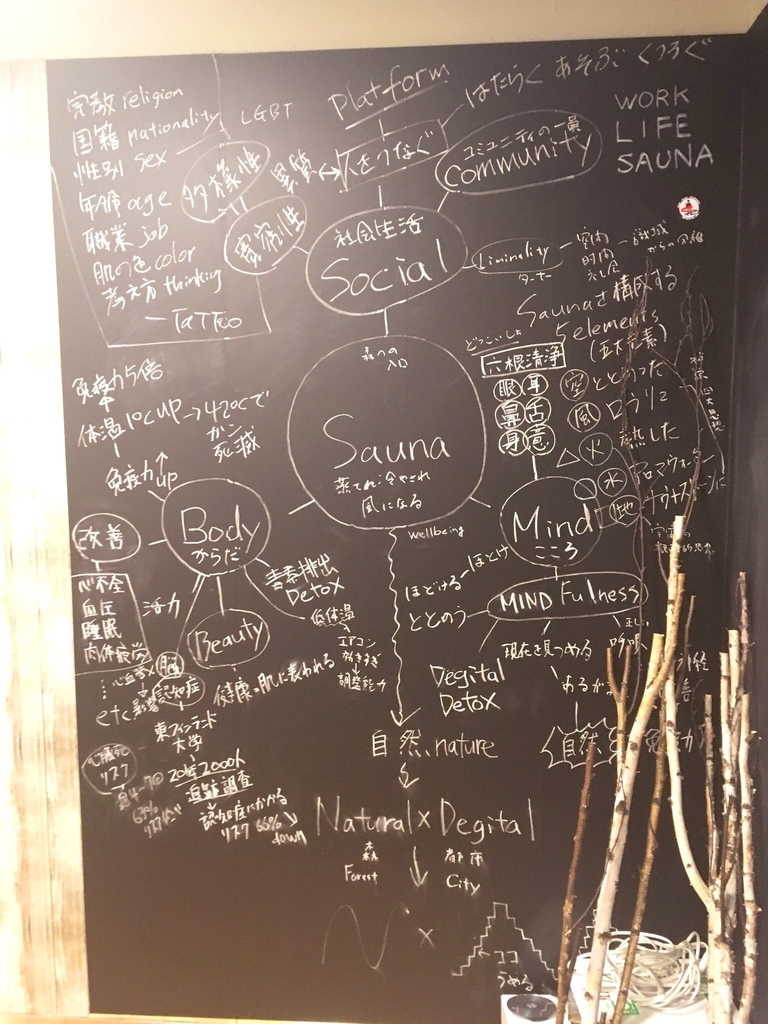 Platform
はたらく あそぶ くつろぐ
WORK
LIFE
SAUNA
宗教 religion
国籍 nationality
LGBT
性別 sex
年齢 age
職業 job
肌の色 color
考え方 thinking
TaTToo
多様性
寛容性
異質
人をつなぐ
コミュニティの一員
Community
社会生活
Social
Liminality
ターナー
空間
時間
Saunaを構成する
5 elements
森への
入口
Sauna
蒸され 冷やされ
風になる
どっこいしょ
六根清浄
眼 耳
鼻 舌
身 意
空 ととのった
風 ロウリュ
火 熱した
水
地
免疫力5倍
体温1℃up→42℃で
ガン
死滅
免疫力up
Body
からだ
改善
心不全
血圧
睡眠
肉体疲労
etc
活力
Beauty
健康は肌に表われる
毒素排出
Detox
低体温
エアコン
効きすぎ
調整能力
脳
認知症
東フィンランド
大学
20年2000人
追跡調査
認知症にかかる
リスク 66%
down
リスク
週4~7回
63%
wellbeing
Mind
こころ
ほどける
ほとけ
ととのう
MINDFulness
Degital
Detox
現在を見つめる
正しい
呼吸
自然
自然、nature
Natural×Degital
森
Forest
都市
City
×
←ココ
うめる